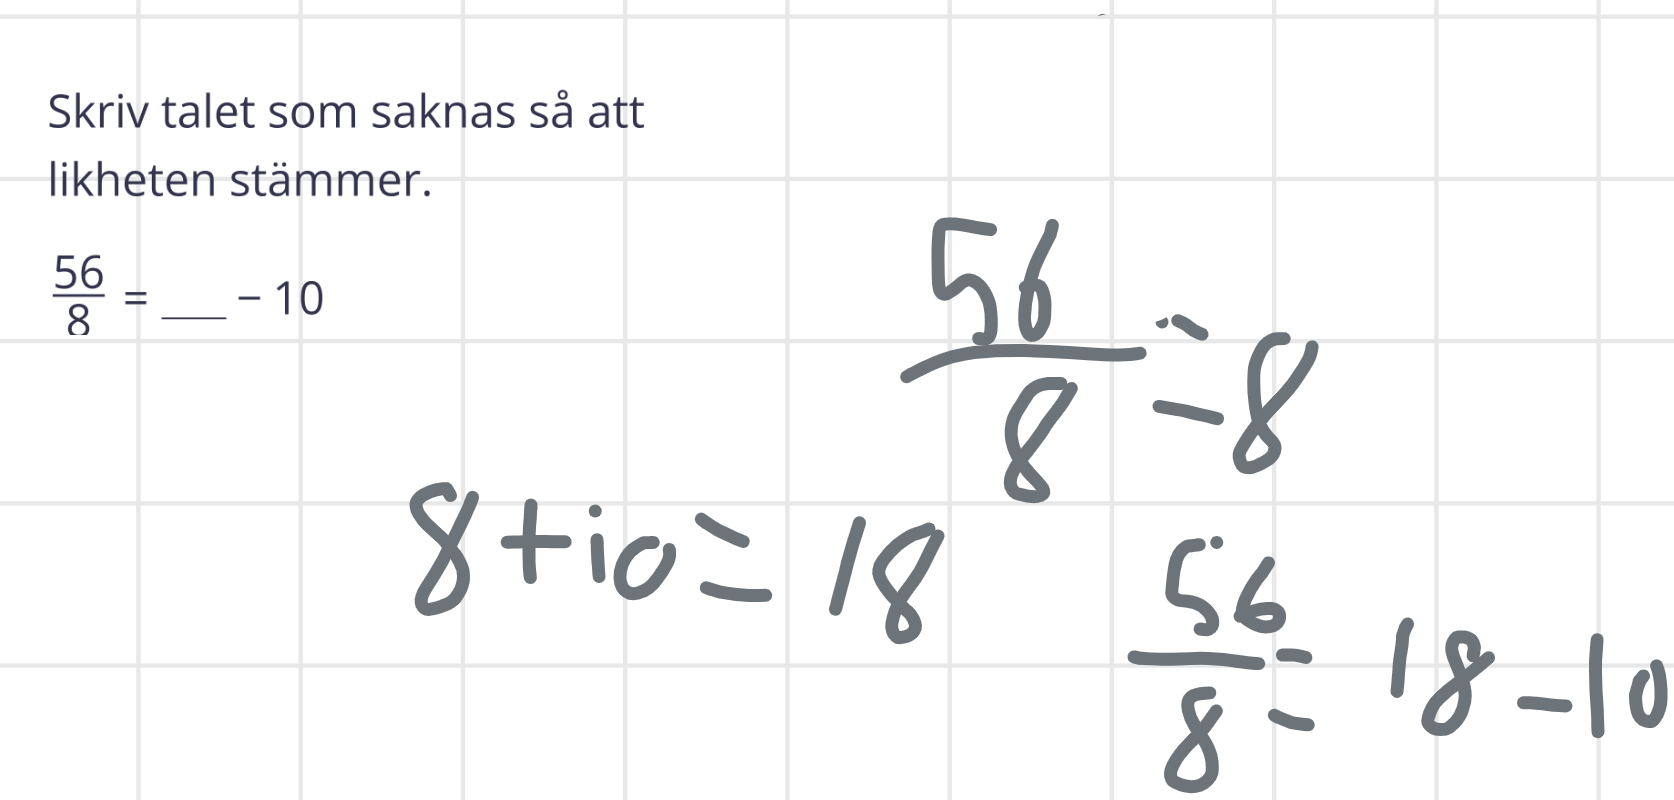 Skriv talet som saknas så att
likheten stämmer.
56/8 = ___ − 10
56/8 = 8
8+10=18
56/8 = 18-10